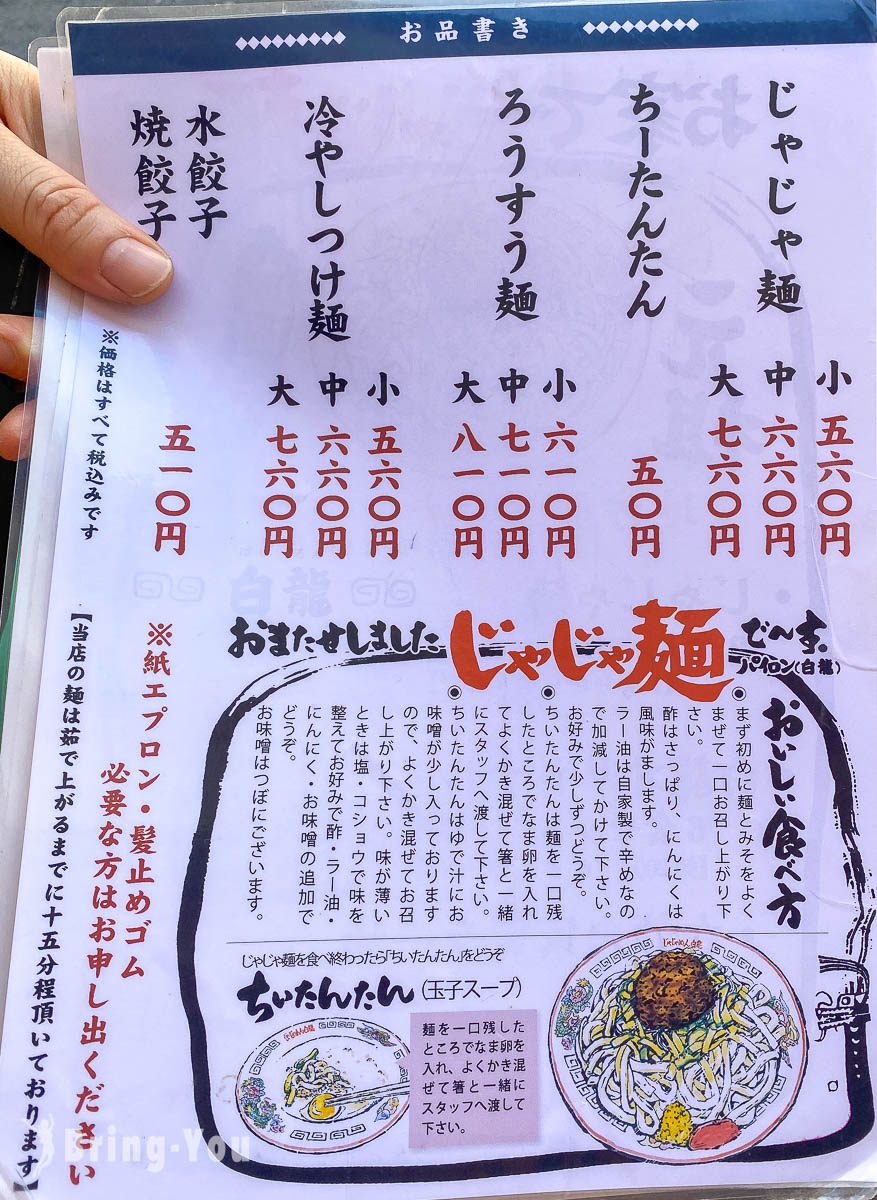 お品書き
じゃじゃ麺
小 五六〇円
中 六六〇円
大 七六〇円
ちーたんたん
五〇円
ろうすう麺
小 六一〇円
中 七一〇円
大 八一〇円
冷やしつけ麺
小 五六〇円
中 六六〇円
大 七六〇円
水餃子
焼餃子
五一〇円
※価格はすべて税込みです
おまたせしました
じゃじゃ麺
で〜す。
パイロン(白龍)
おいしい食べ方
まず初めに麺とみそをよく
まぜて一口お召し上がり下
さい。
酢はさっぱり、にんにくは
風味がまします。
ラー油は自家製で辛めなの
で加減してかけて下さい。
お好みで少しずつどうぞ。
ちいたんたんは麺を一口残
したところでなま卵を入れ
てよくかき混ぜて箸と一緒
にスタッフへ渡して下さい。
ちいたんたんはゆで汁にお
味噌が少し入っております
ので、よくかき混ぜてお召
し上がり下さい。味が薄い
ときは塩・コショウで味を
整えてお好みで酢・ラー油・
にんにく・お味噌の追加で
どうぞ。
お味噌はつぼにございます。
じゃじゃ麺を食べ終わったら「ちいたんたん」をどうぞ
ちいたんたん(玉子スープ)
麺を一口残した
ところでなま卵を
入れ、よくかき混
ぜて箸と一緒に
スタッフへ渡して
下さい。
※紙エプロン・髪止めゴム
必要な方はお申し出ください
【当店の麺は茹で上がるまでに十五分程頂いております】
白龍
Bring-You